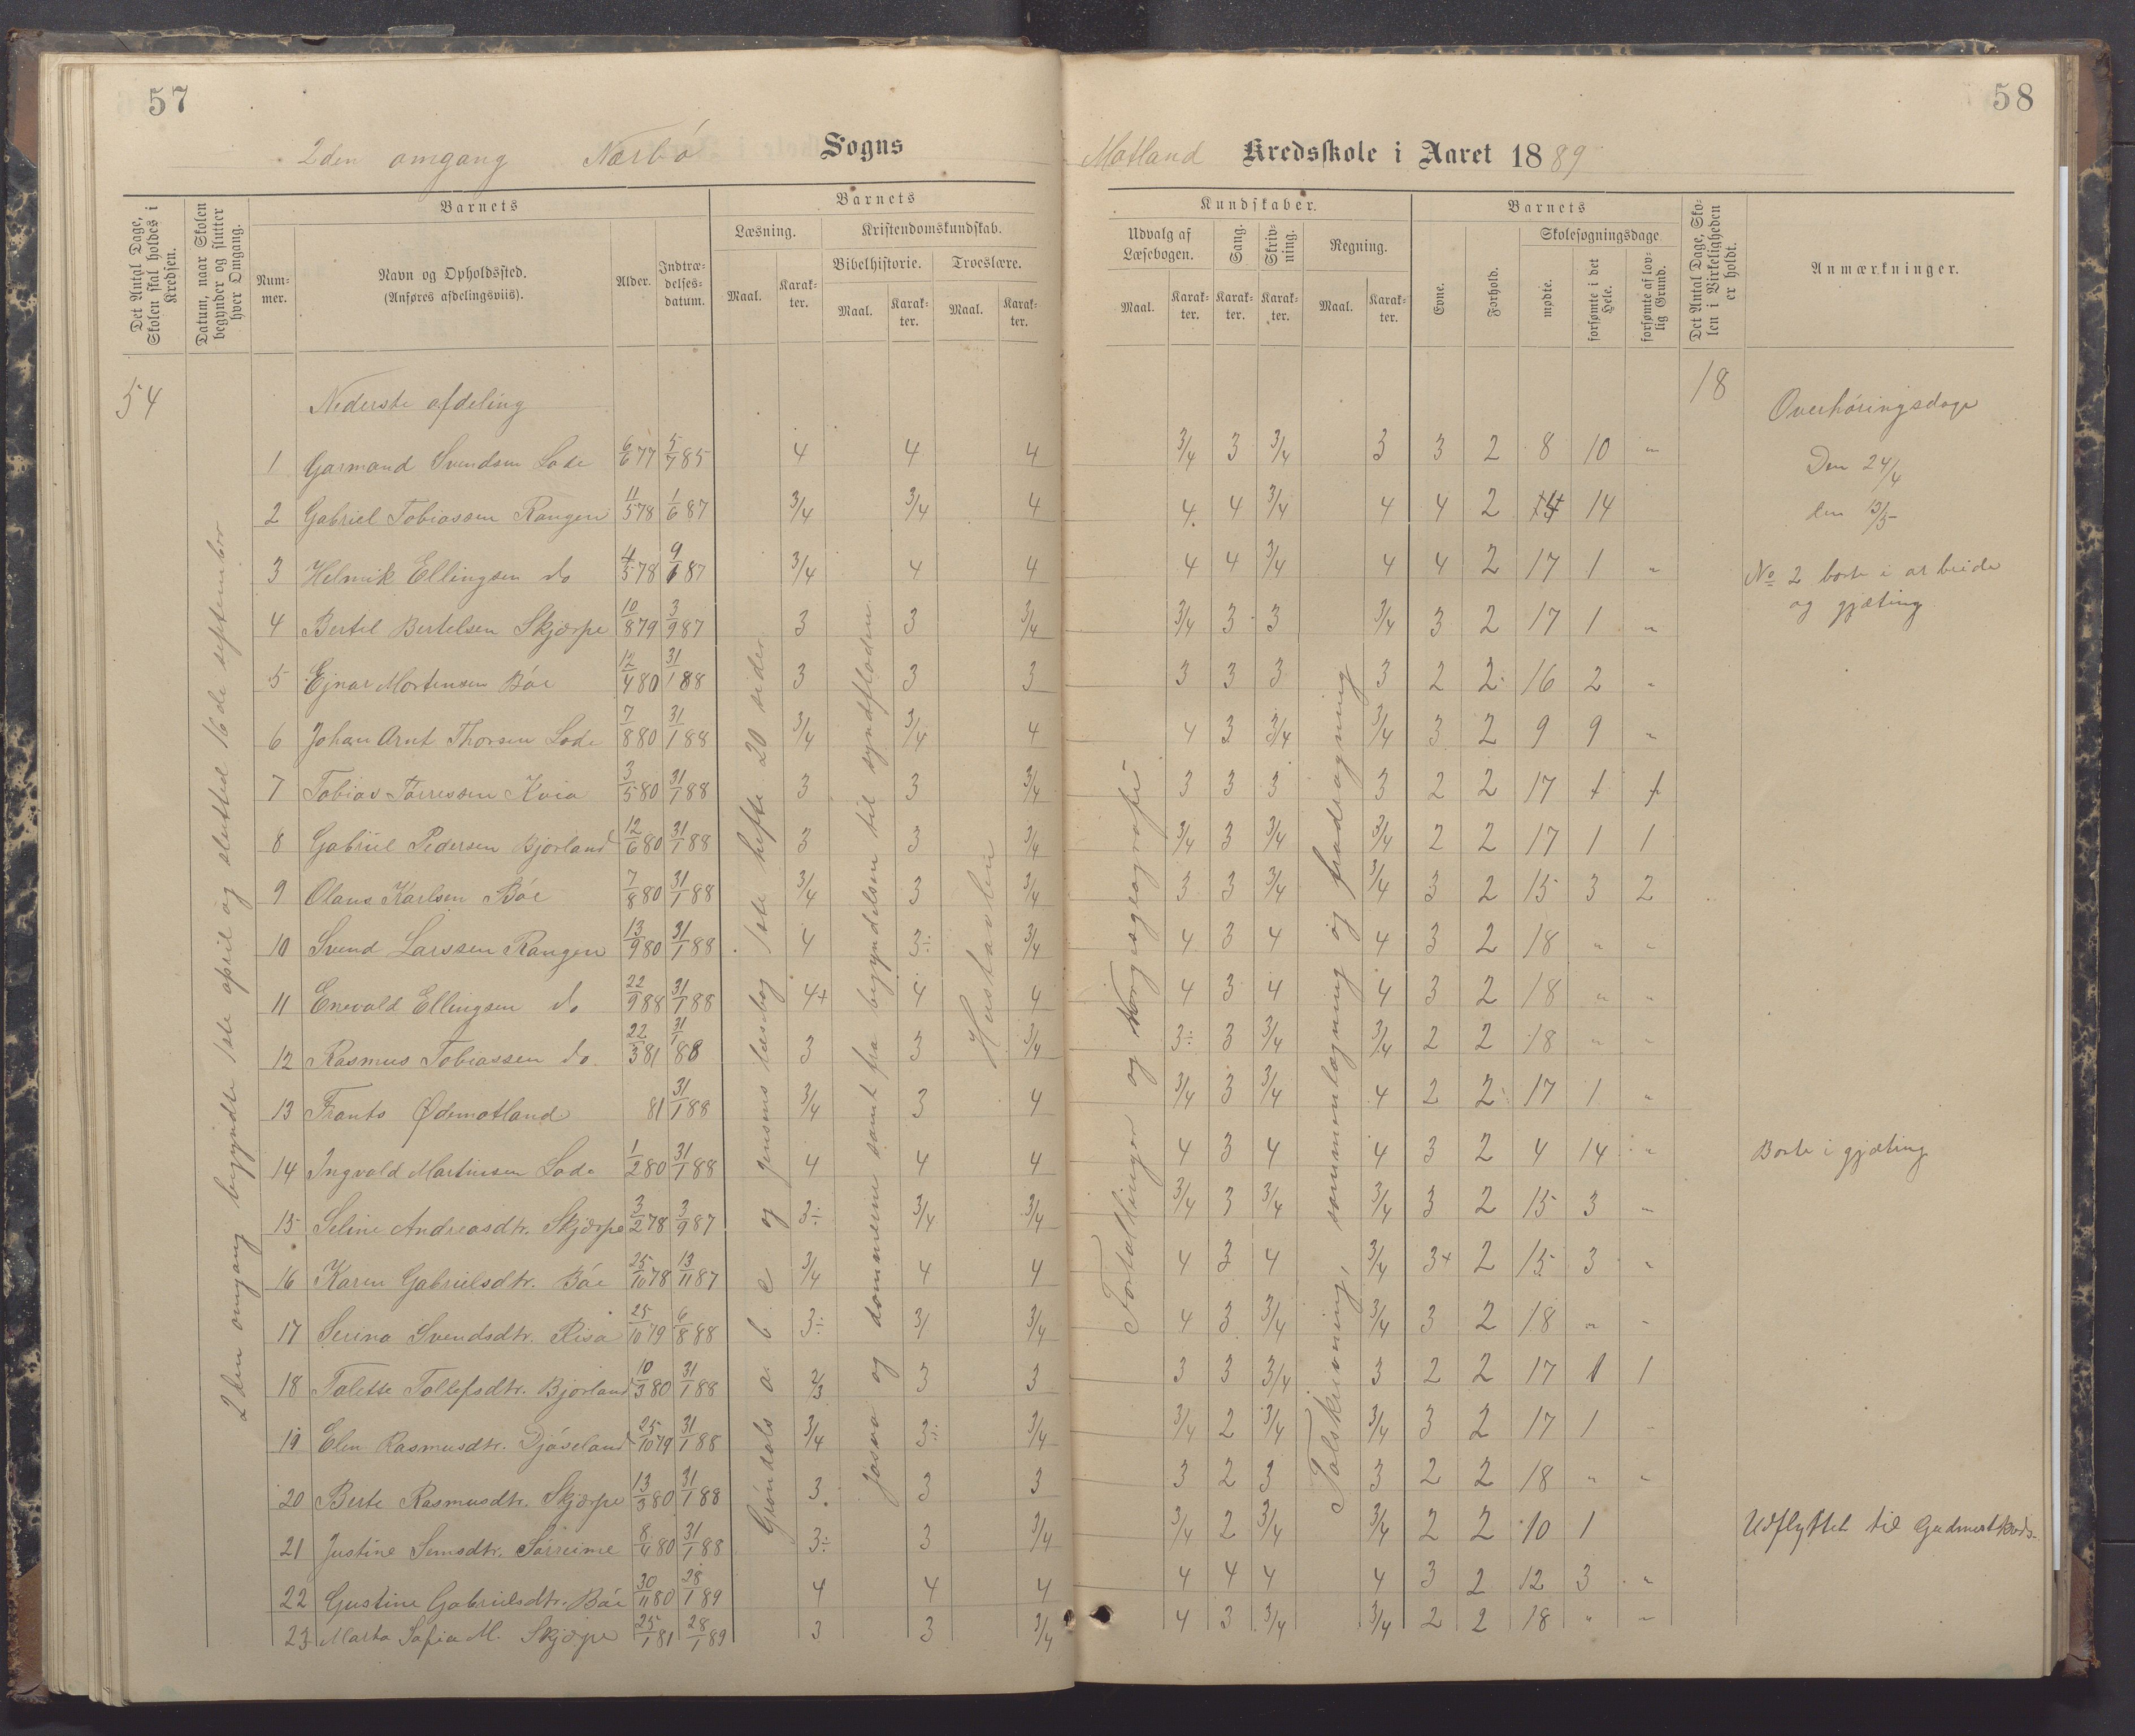 57
58
2den omgang Nærbø Sogns
Motland Kredsskole i Aaret 1889
Det Antal Dage, Skolen skal holdes i Kredsen.
Datum, naar Skolen begynder og slutter hver Omgang.
Barnets
Nummer.
Navn og Opholdssted.
(Anføres afdelingsviis).
Alder.
Indtrædelsesdatum.
Barnets
Læsning.
Kristendomskundskab.
Bibelhistorie. Troeslære.
Maal. Karakter. Maal. Karakter. Maal. Karakter.
Kundskaber.
Udvalg af Læsebogen. Sang. Skrivning. Regning.
Maal. Karakter. Karakter. Karakter. Maal. Karakter.
Barnets
Evne. Forhold.
Skolesøgningsdage
mødte. forsømte i det Hele. forsømte af lovlig Grund.
Det Antal Dage, Skolen i Virkeligheden er holdt.
Anmærkninger.
54 Nederste afdeling 18 Overhøringsdage
2den omgang begyndte 1ste april og slutted 16de september
Grøndals a b c og Jensens læsebog 1ste hefte 20 sider
Josva og dommerne samt fra begyndelsen til syndfloden
Hustavlen
Fortællinger og Norgesgeografi
Talskrivning, sammenlægning og fradragning
1 Garmand Svendsen Lode 6/6 77 5/7 85 4 4 4 3/4 3 3/4 3 3 2 8 10 "
Den 24/4
2 Gabriel Tobiassen Rangen 11/5 78 1/6 87 3/4 3/4 4 4 4 3/4 4 4 2 14
den 13/5
3 Helmik Ellingsen do 4/5 78 9/6 87 3/4 4 4 4 4 3/4 4 4 2 17 1 "
No 2 borte i arbeide
og gjæting
4 Bertel Bertelsen Skjærpe 10/8 79 3/9 87 3 3 3/4 3/4 3 3 3/4 3 2 17 1 "
5 Ejnar Mortensen Bøe 12/4 80 31/1 88 3 3 3 3 3 3 3 2 2 16 2 "
6 Johan Arnt Thorsen Lode 7/8 80 31/1 88 3/4 3/4 4 4 3 3/4 3/4 3 2 9 9 "
7 Tobias Tørressen Kvia 3/5 80 31/1 88 3 3 3/4 3 3 3 3 2 2 17 1 1
8 Gabriel Pedersen Bjorland 12/6 80 31/1 88 3 3 3/4 3/4 3 3/4 3/4 2 2 17 1 1
9 Olaus Karlsen Bøe 7/8 80 31/1 88 3/4 3 3/4 3 3 3/4 3/4 3 2 15 3 2
10 Svend Larssen Rangen 13/9 80 31/1 88 4 3÷ 3/4 4 3 4 4 3 2 18 " "
11 Enevald Ellingsen do 22/9 88 31/1 88 4+ 4 4 4 3 4 4 3 2 18 " "
12 Rasmus Tobiassen do. 22/3 81 31/1 88 3 3 3/4 3÷ 3 3/4 3/4 2 2 18 " "
13 Frants Ødemotland 81 31/1 88 3/4 3 4 3/4 3 3/4 4 2 2 17 1 "
14 Ingvald Martinsen Lode 1/2 80 31/1 88 4 4 4 4 3 4 4 3 2 4 14 "
Borte i gjæting
15 Seline Andreasdtr. Skjærpe 3/2 78 3/9 87 3÷ 3/4 3/4 3/4 3 3/4 3/4 3 2 15 3 "
16 Karen Gabrielsdtr. Bøe 25/10 78 13/11 87 3/4 4 4 4 3 4 3/4 3+ 2 15 3 "
17 Serina Svendsdtr. Risa 25/10 79 6/8 88 3÷ 3/ 3/4 4 3 3/4 3/4 3 2 18 " "
18 Talette Tollefsdtr. Bjorland 10/3 80 31/1 88 2/3 3 3 3 3 3/4 3 2 2 17 1 1
19 Elen Rasmusdtr. Djøseland 25/10 79 31/1 88 3/4 3÷ 3/4 3/4 2 3/4 3/4 3 2 17 1 "
20 Berte Rasmusdtr. Skjærpe 13/3 80 31/1 88 3 3 3 3 2 3 3 2 2 18 " "
21 Justine Simsdtr. Sørreime 8/4 80 31/1 88 3÷ 3 3/4 3/4 2 3/4 3/4 2 2 10 1
Udflyttet til
22 Gustine Gabrielsdtr. Bøe 30/11 80 28/1 89 4 4 4 4 4 4 4 3 2 12 3 "
23 Marta Sofia M. Skjærpe 25/1 81 28/1 89 3 3 3/4 4 3 3/4 3/4 2 2 18 " "